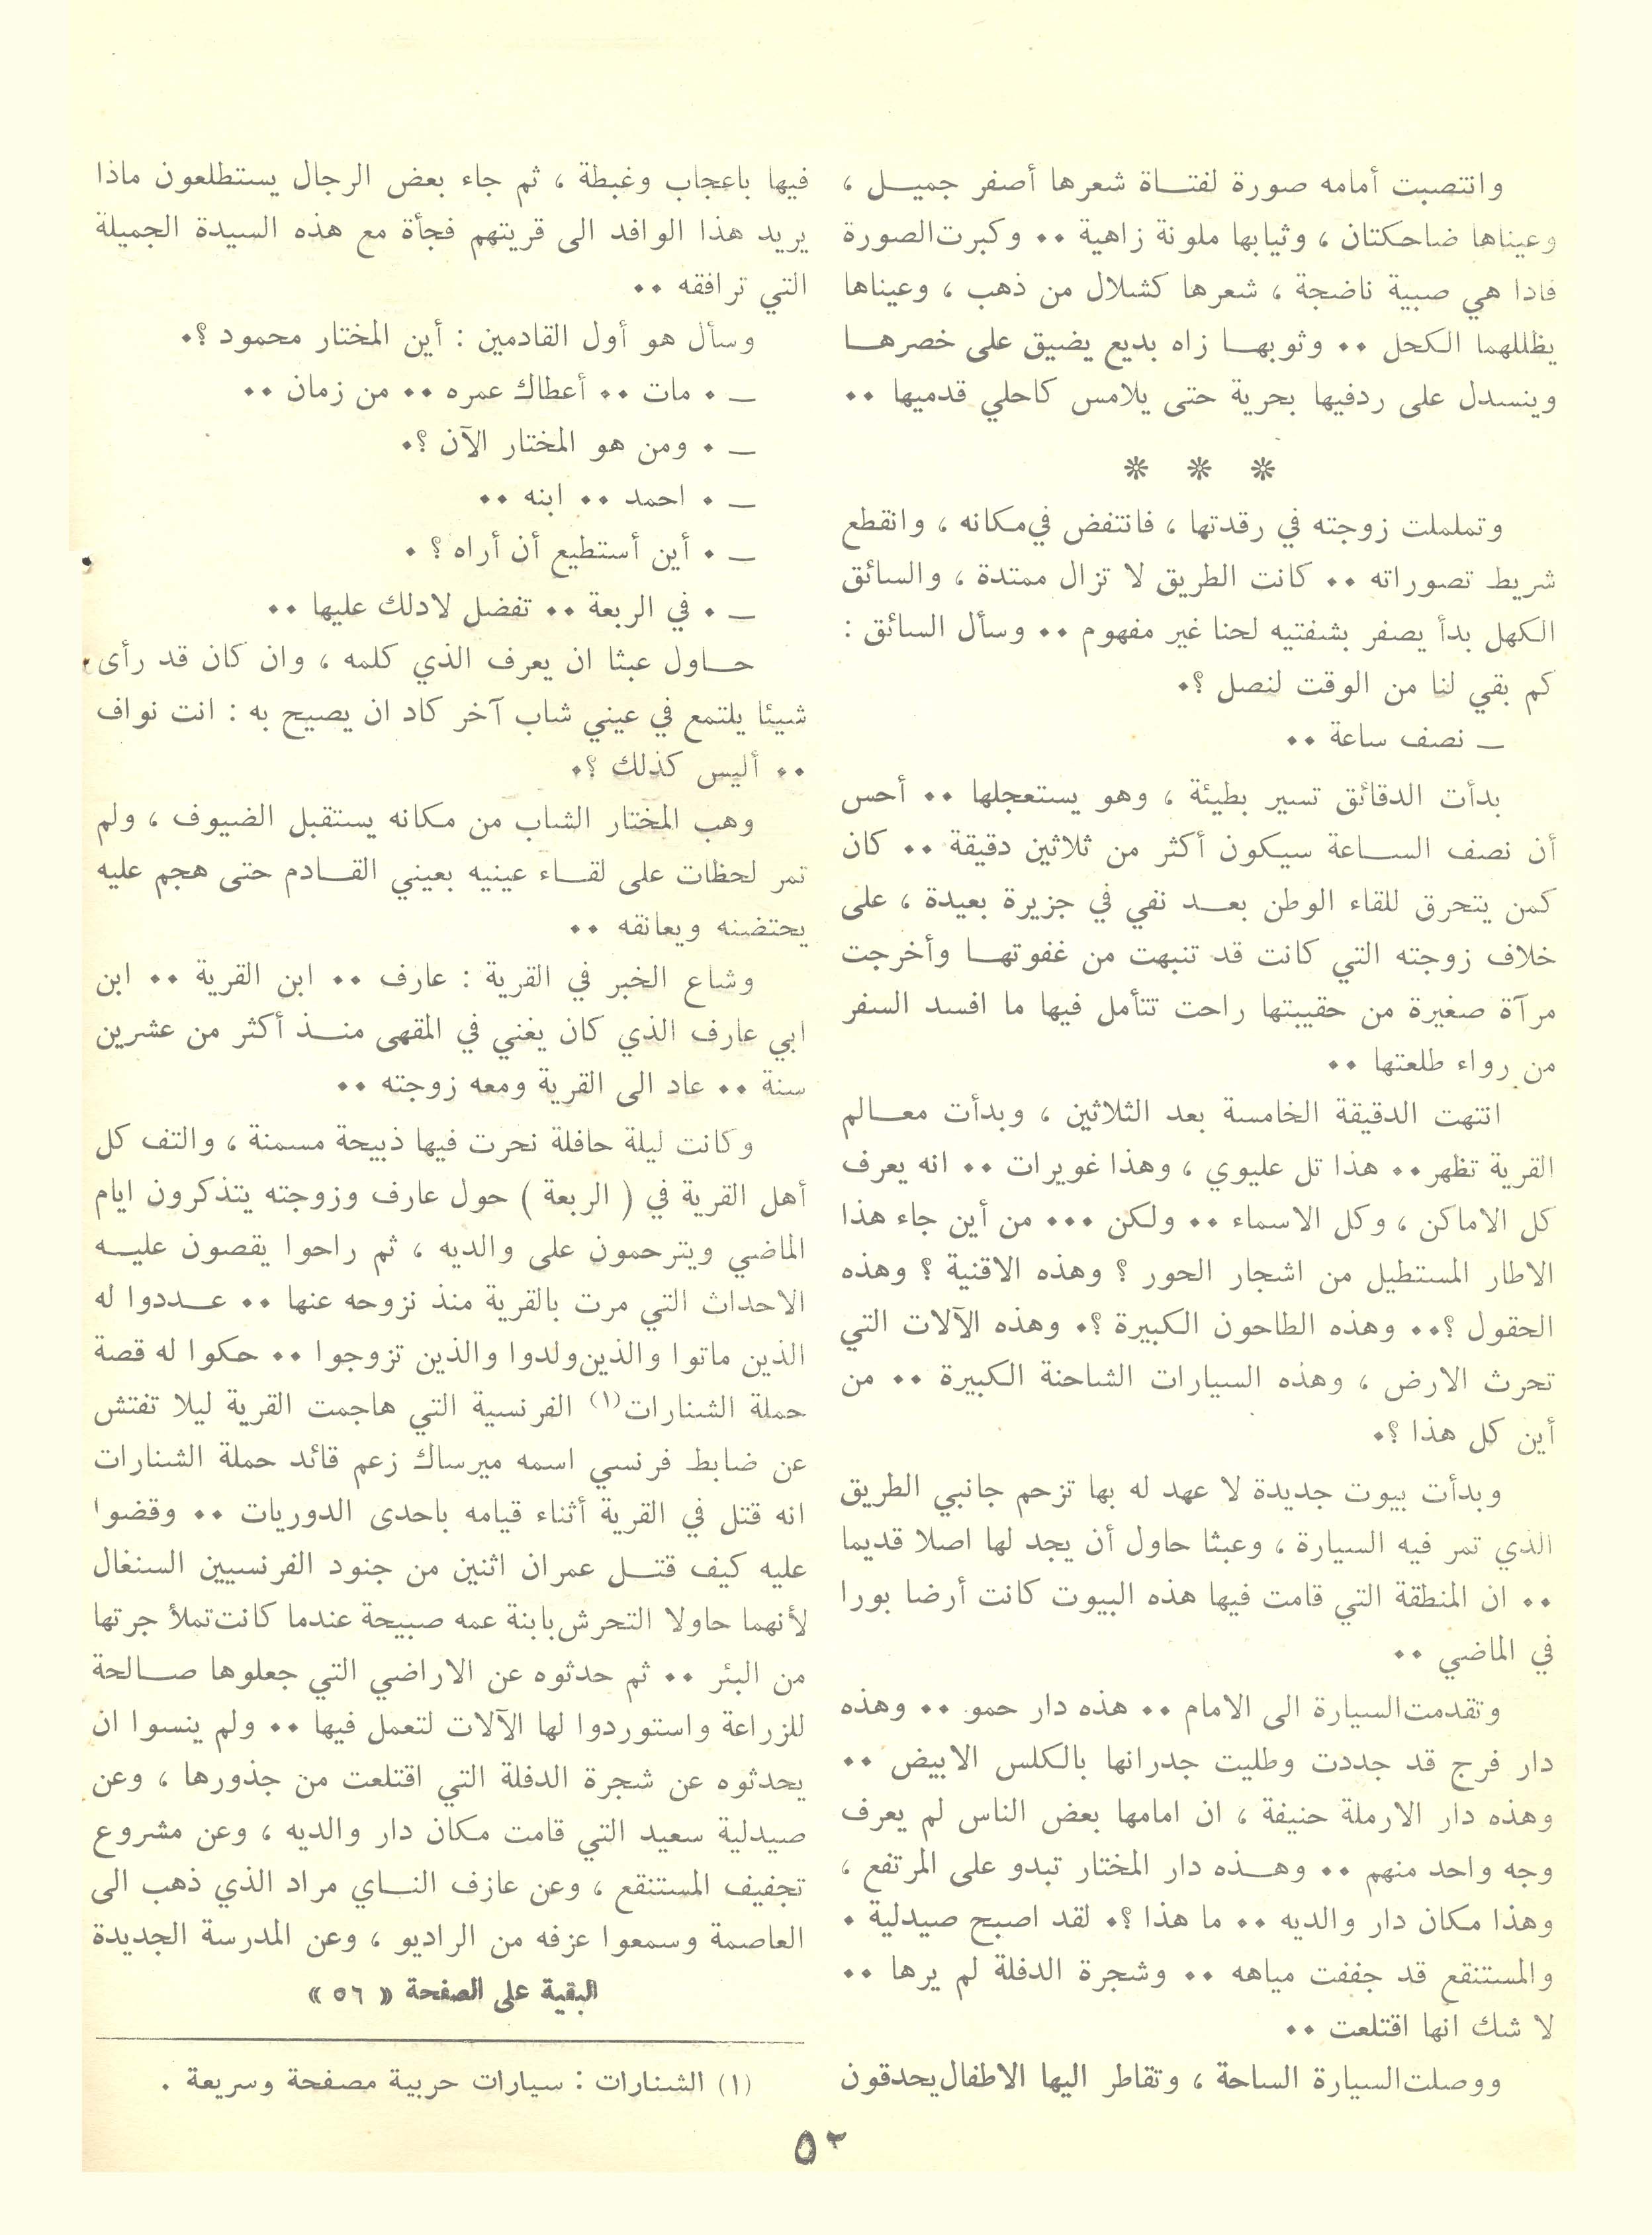 وانتصبت أمامه صورة لفتاة شعرها أصفر جميل ،
وعيناها ضاحكتان ، وثيابها ملونة زاهية ٠٠ وكبرت الصورة
فاذا هي صبية ناضجة ، شعرها كشلال من ذهب ، وعيناها
يظللهما الكحل ٠٠ وثوبها زاه بديع يضيق على خصرها
وينسدل على ردفيها بحرية حتى يلامس كاحلي قدميها ٠٠
* * *
وتململت زوجته في رقدتها ، فانتفض في مكانه ، وانقطع
شريط تصوراته ٠٠ كانت الطريق لا تزال ممتدة ، والسائق
الكهل بدأ يصفر بشفتيه لحنا غير مفهوم ٠٠ وسأل السائق :
كم بقي لنا من الوقت لنصل ؟٠
ـ نصف ساعة ٠٠
بدأت الدقائق تسير بطيئة ، وهو يستعجلها ٠٠ أحس
أن نصف الساعة سيكون أكثر من ثلاثين دقيقة ٠٠ كان
كمن يتحرق للقاء الوطن بعد نفي في جزيرة بعيدة ، على
خلاف زوجته التي كانت قد تنبهت من غفوتها وأخرجت
مرآة صغيرة من حقيبتها راحت تتأمل فيها ما افسد السفر
من رواء طلعتها ٠٠
انتهت الدقيقة الخامسة بعد الثلاثين ، وبدأت معالم
القرية تظهر ٠٠ هذا تل عليوي ، وهذا غويرات ٠٠ انه يعرف
كل الاماكن ، وكل الاسماء ٠٠ ولكن ٠٠٠ من أين جاء هذا
الاطار المستطيل من اشجار الحور ؟ وهذه الاقنية ؟ وهذه
الحقول ؟٠٠ وهذه الطاحون الكبيرة ؟٠ وهذه الآلات التي
تحرث الارض ، وهذه السيارات الشاحنة الكبيرة ٠٠ من
أين كل هذا ؟٠
وبدأت بيوت جديدة لا عهد له بها تزحم جانبي الطريق
الذي تمر فيه السيارة ، وعبثا حاول أن يجد لها اصلا قديما
٠٠ ان المنطقة التي قامت فيها هذه البيوت كانت أرضا بورا
في الماضي ٠٠
وتقدمت السيارة الى الامام ٠٠ هذه دار حمو ٠٠ وهذه
دار فرج قد جددت وطليت جدرانها بالكلس الابيض ٠٠
وهذه دار الارملة حنيفة ، ان امامها بعض الناس لم يعرف
وجه واحد منهم ٠٠ وهذه دار المختار تبدو على المرتفع ،
وهذا مكان دار والديه ٠٠ ما هذا ؟٠ لقد اصبح صيدلية ٠
والمستنقع قد جففت مياهه ٠٠ وشجرة الدفلة لم يرها ٠٠
لا شك انها اقتلعت ٠٠
ووصلت السيارة الساحة ، وتقاطر اليها الاطفال يحدقون
فيها باعجاب وغبطة ، ثم جاء بعض الرجال يستطلعون ماذا
يريد هذا الوافد الى قريتهم فجأة مع هذه السيدة الجميلة
التي ترافقه ٠٠
وسأل هو أول القادمين : أين المختار محمود ؟٠
ـ ٠ مات ٠٠ أعطاك عمره ٠٠ من زمان ٠٠
ـ ٠ ومن هو المختار الآن ؟٠
ـ ٠ احمد ٠٠ ابنه ٠٠
ـ ٠ أين أستطيع أن أراه ؟ ٠
ـ ٠ في الربعة ٠٠ تفضل لادلك عليها ٠٠
حاول عبثا ان يعرف الذي كلمه ، وان كان قد رأى
شيئا يلتمع في عيني شاب آخر كاد ان يصيح به : انت نواف
٠٠ أليس كذلك ؟٠
وهب المختار الشاب من مكانه يستقبل الضيوف ، ولم
تمر لحظات على لقاء عينيه بعيني القادم حتى هجم عليه
يحتضنه ويعانقه ٠٠
وشاع الخبر في القرية : عارف ٠٠ ابن القرية ٠٠ ابن
ابي عارف الذي كان يغني في المقهى منذ أكثر من عشرين
سنة ٠٠ عاد الى القرية ومعه زوجته ٠٠
وكانت ليلة حافلة نحرت فيها ذبيحة مسمنة ، والتف كل
أهل القرية في ( الربعة ) حول عارف وزوجته يتذكرون ايام
الماضي ويترحمون على والديه ، ثم راحوا يقصون عليه
الاحداث التي مرت بالقرية منذ نزوحه عنها ٠٠ عددوا له
الذين ماتوا والذين ولدوا والذين تزوجوا ٠٠ حكوا له قصة
حملة الشنارات(١) الفرنسية التي هاجمت القرية ليلا تفتش
عن ضابط فرنسي اسمه ميرساك زعم قائد حملة الشنارات
انه قتل في القرية أثناء قيامه باحدى الدوريات ٠٠ وقضوا
عليه كيف قتل عمران اثنين من جنود الفرنسيين السنغال
لأنهما حاولا التحرش بابنة عمه صبيحة عندما كانت تملأ جرتها
من البئر ٠٠ ثم حدثوه عن الاراضي التي جعلوها صالحة
للزراعة واستوردوا لها الآلات لتعمل فيها ٠٠ ولم ينسوا ان
يحدثوه عن شجرة الدفلة التي اقتلعت من جذورها ، وعن
صيدلية سعيد التي قامت مكان دار والديه ، وعن مشروع
تجفيف المستنقع ، وعن عازف الناي مراد الذي ذهب الى
العاصمة وسمعوا عزفه من الراديو ، وعن المدرسة الجديدة
البقية على الصفحة « ٥٦ »
(١) الشنارات : سيارات حربية مصفحة وسريعة .
٥٢